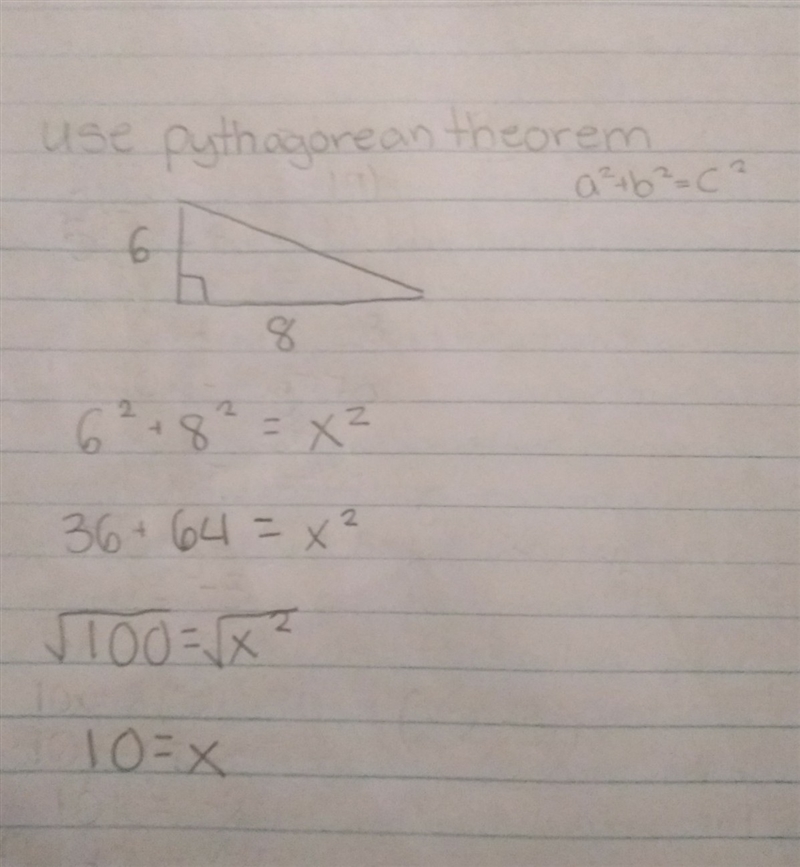 use pythagorean theorem
a²+b²=c²
6
8
6² + 8² = x²
36 + 64 = x²
√100 = √x²
10 = x